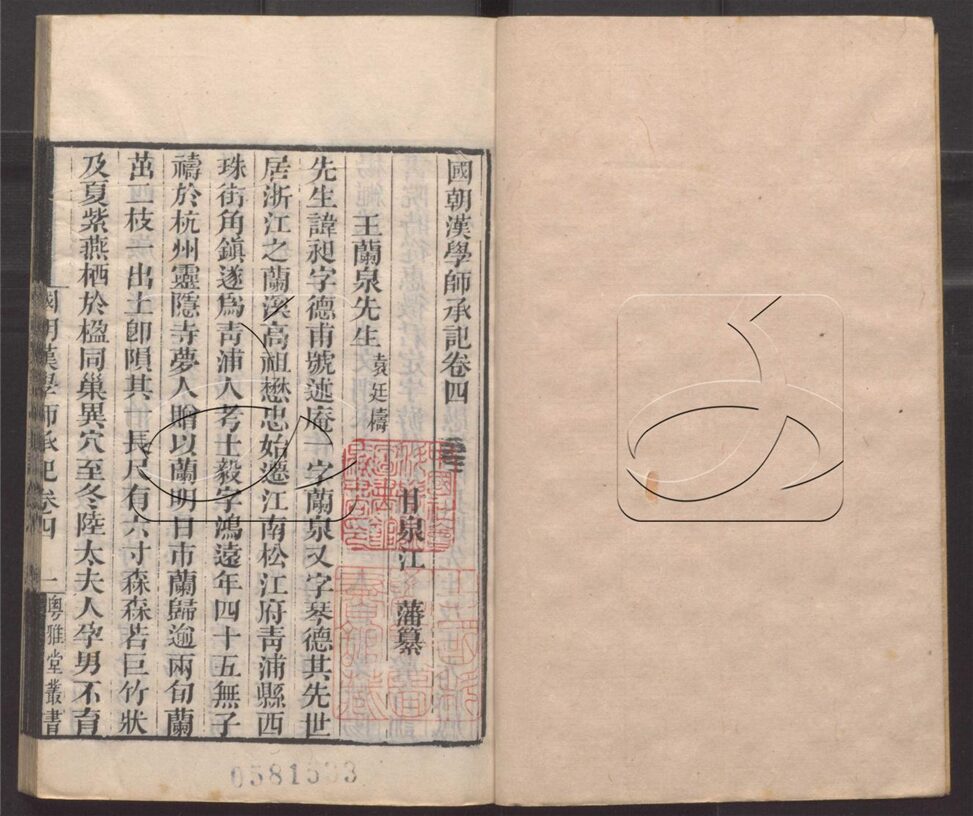 國朝漢學師承記卷四
甘泉江 藩纂
王蘭泉先生 袁廷檮
先生諱昶字德甫號述庵一字蘭泉又字琴德其先世
居浙江之蘭溪高祖懋忠始遷江南松江府青浦縣西
珠街角鎮遂爲青浦人考士毅字鴻遠年四十五無子
禱於杭州靈隱寺夢人贈以蘭明日市蘭歸逾兩旬蘭
茁四枝一出土卽隕其一長尺有六寸森森若巨竹狀
及夏紫燕栖於楹同巢異穴至冬陸太夫人孕男不育
國朝漢學師承記卷四 一 粵雅堂叢書
0581533